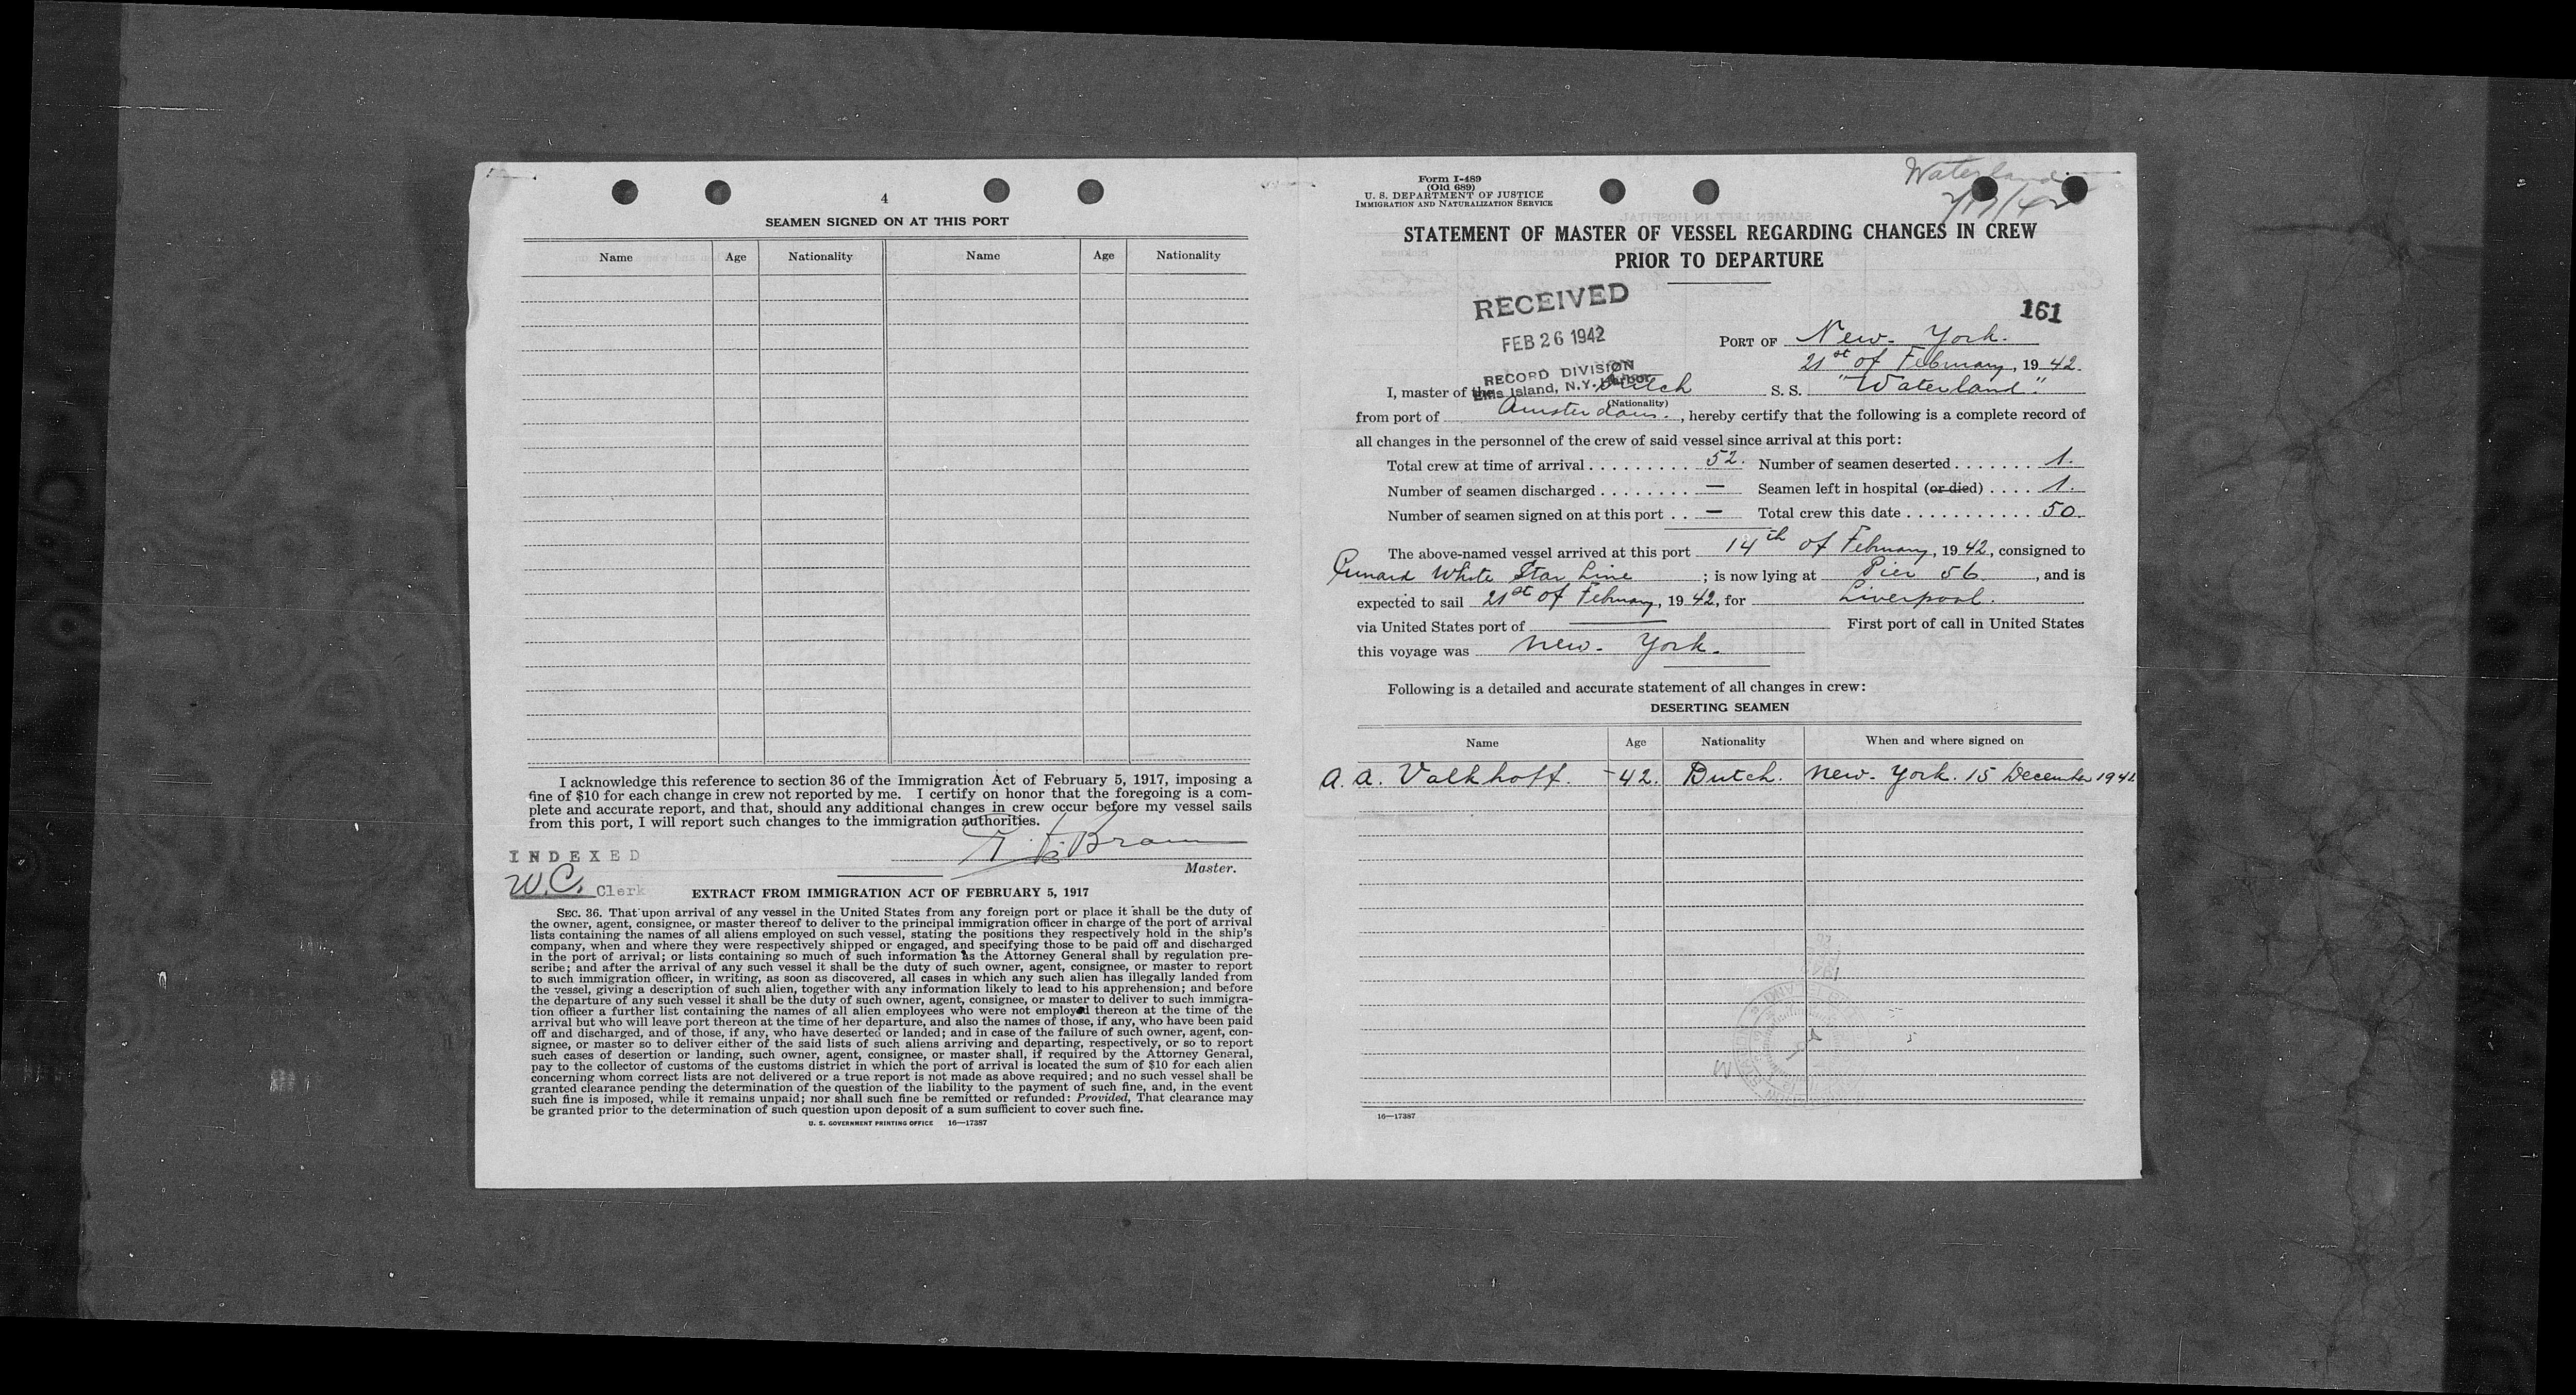 4
SEAMEN SIGNED ON AT THIS PORT
Name Age Nationality Name Age Nationality
I acknowledge this reference to section 36 of the Immigration Act of February 5, 1917, imposing a
fine of $10 for each change in crew not reported by me. I certify on honor that the foregoing is a com-
plete and accurate report, and that, should any additional changes in crew occur before my vessel sails
from this port, I will report such changes to the immigration authorities.
INDEXED
Master.
W.C. Clerk
EXTRACT FROM IMMIGRATION ACT OF FEBRUARY 5, 1917
SEC. 36. That upon arrival of any vessel in the United States from any foreign port or place it shall be the duty of
the owner, agent, consignee, or master thereof to deliver to the principal immigration officer in charge of the port of arrival
lists containing the names of all aliens employed on such vessel, stating the positions they respectively hold in the ship's
company, when and where they were respectively shipped or engaged, and specifying those to be paid off and discharged
in the port of arrival; or lists containing so much of such information as the Attorney General shall by regulation pre-
scribe; and after the arrival of any such vessel it shall be the duty of such owner, agent, consignee, or master to report
to such immigration officer, in writing, as soon as discovered, all cases in which any such alien has illegally landed from
the vessel, giving a description of such alien, together with any information likely to lead to his apprehension; and before
the departure of any such vessel it shall be the duty of such owner, agent, consignee, or master to deliver to such immigra-
tion officer a further list containing the names of all alien employees who were not employed thereon at the time of the
arrival but who will leave port thereon at the time of her departure, and also the names of those, if any, who have been paid
off and discharged, and of those, if any, who have deserted or landed; and in case of the failure of such owner, agent, con-
signee, or master so to deliver either of the said lists of such aliens arriving and departing, respectively, or so to report
such cases of desertion or landing, such owner, agent, consignee, or master shall, if required by the Attorney General,
pay to the collector of customs of the customs district in which the port of arrival is located the sum of $10 for each alien
concerning whom correct lists are not delivered or a true report is not made as above required; and no such vessel shall be
granted clearance pending the determination of the question of the liability to the payment of such fine, and, in the event
such fine is imposed, while it remains unpaid; nor shall such fine be remitted or refunded: Provided, That clearance may
be granted prior to the determination of such question upon deposit of a sum sufficient to cover such fine.
U. S. GOVERNMENT PRINTING OFFICE 16—17387
Waterland
Form I-489
(Old 689)
U. S. DEPARTMENT OF JUSTICE
IMMIGRATION AND NATURALIZATION SERVICE
STATEMENT OF MASTER OF VESSEL REGARDING CHANGES IN CREW
PRIOR TO DEPARTURE
RECEIVED
161
FEB 26 1942
PORT OF New-York.
RECORD DIVISION
21st of February, 1942.
Ellis Island, N.Y. Harbor
I, master of the Dutch S. S. "Waterland".
(Nationality)
from port of Amsterdam., hereby certify that the following is a complete record of
all changes in the personnel of the crew of said vessel since arrival at this port:
Total crew at time of arrival . . . . . . . . . . 52. Number of seamen deserted . . . . . . . 1.
Number of seamen discharged . . . . . . . . — Seamen left in hospital (or died) . . . . 1.
Number of seamen signed on at this port . . — Total crew this date . . . . . . . . . . . . 50.
The above-named vessel arrived at this port 14th of February, 1942, consigned to
Cunard White Star Line ; is now lying at Pier 56, and is
expected to sail 21st of February, 1942, for Liverpool.
via United States port of — First port of call in United States
this voyage was New-York.
Following is a detailed and accurate statement of all changes in crew:
DESERTING SEAMEN
Name Age Nationality When and where signed on
A. A. Valkhoff. 42. Dutch. New-York. 15 December 1941
16—17387